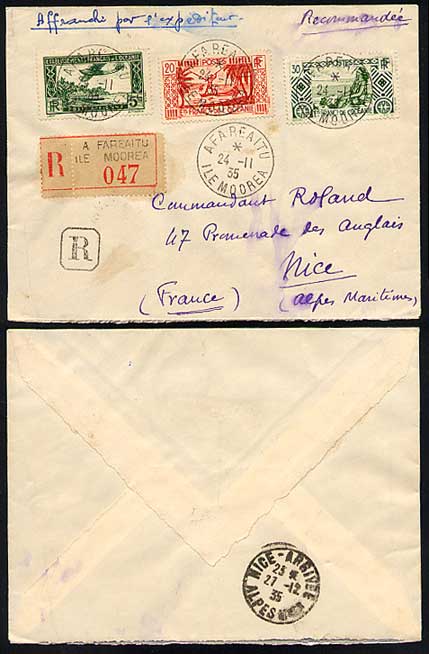 Affranchi par l'expéditeur.
Recommandée
5F
20
POSTES
30
POSTES
AFAREAITU
*
24 -11
35
ILE MOOREA
R
A FAREAITU
ILE MOOREA
047
R
Commandant Roland
47 Promenade des Anglais
Nice
(France)
(Alpes Maritimes)
NICE-ARRIVÉE
23 *
27 -12
35
ALPES MMES